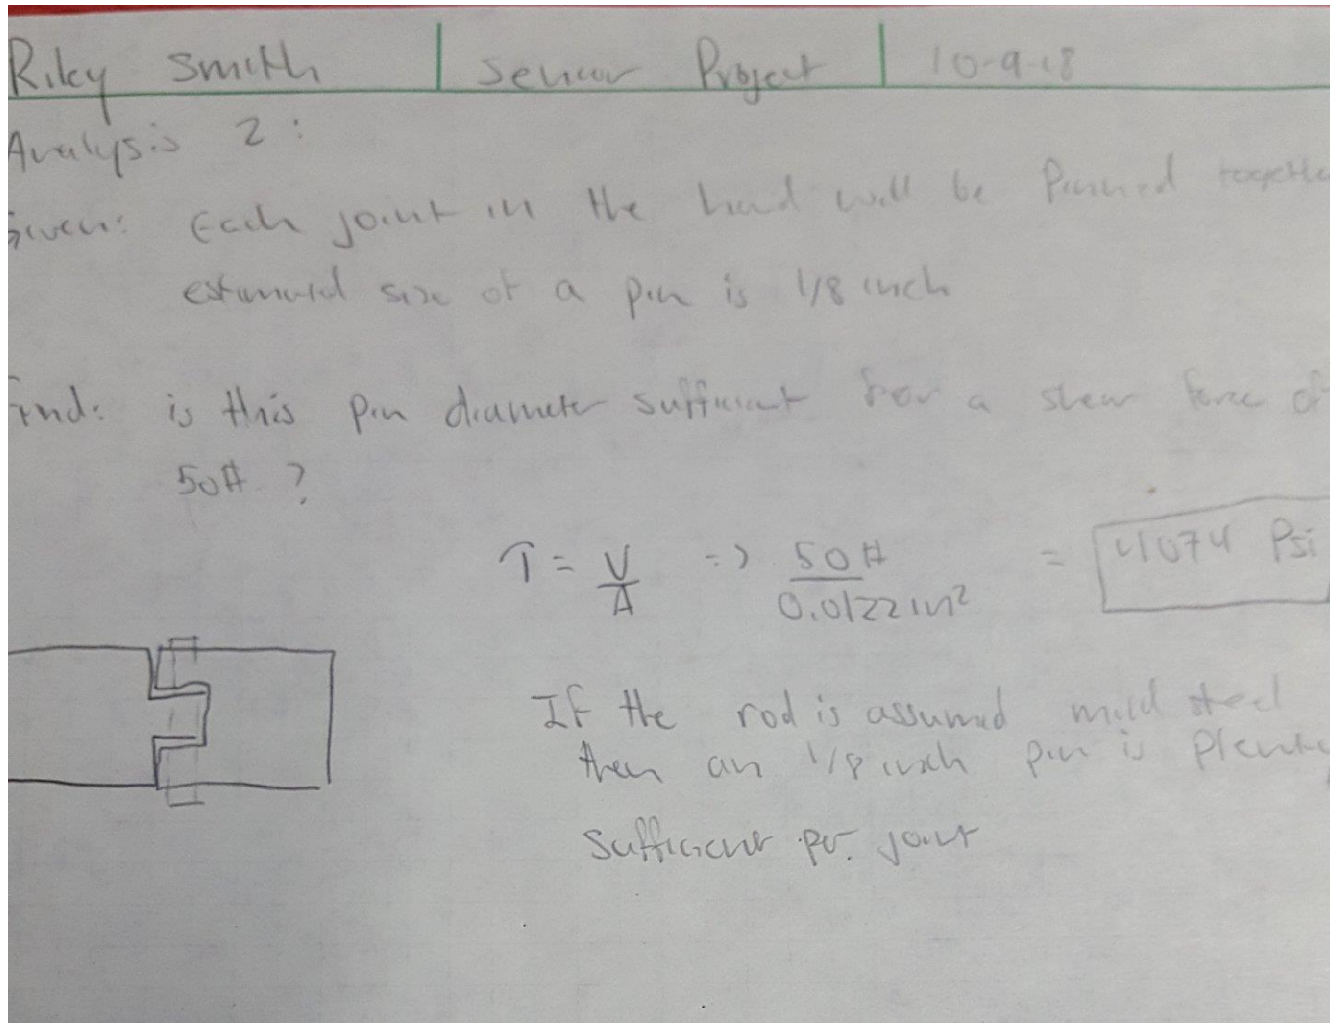 Riley Smith Senior Project 10-9-18
Analysis 2:
Given: Each joint in the hand will be Pinned together
estimated size of a pin is 1/8 inch
Find: is this pin diameter sufficient for a shear force of
50# ?
τ = V/A => 50#/0.0122 in² = 4074 Psi
If the rod is assumed mild steel
then an 1/8 inch pin is plenty
sufficient per joint